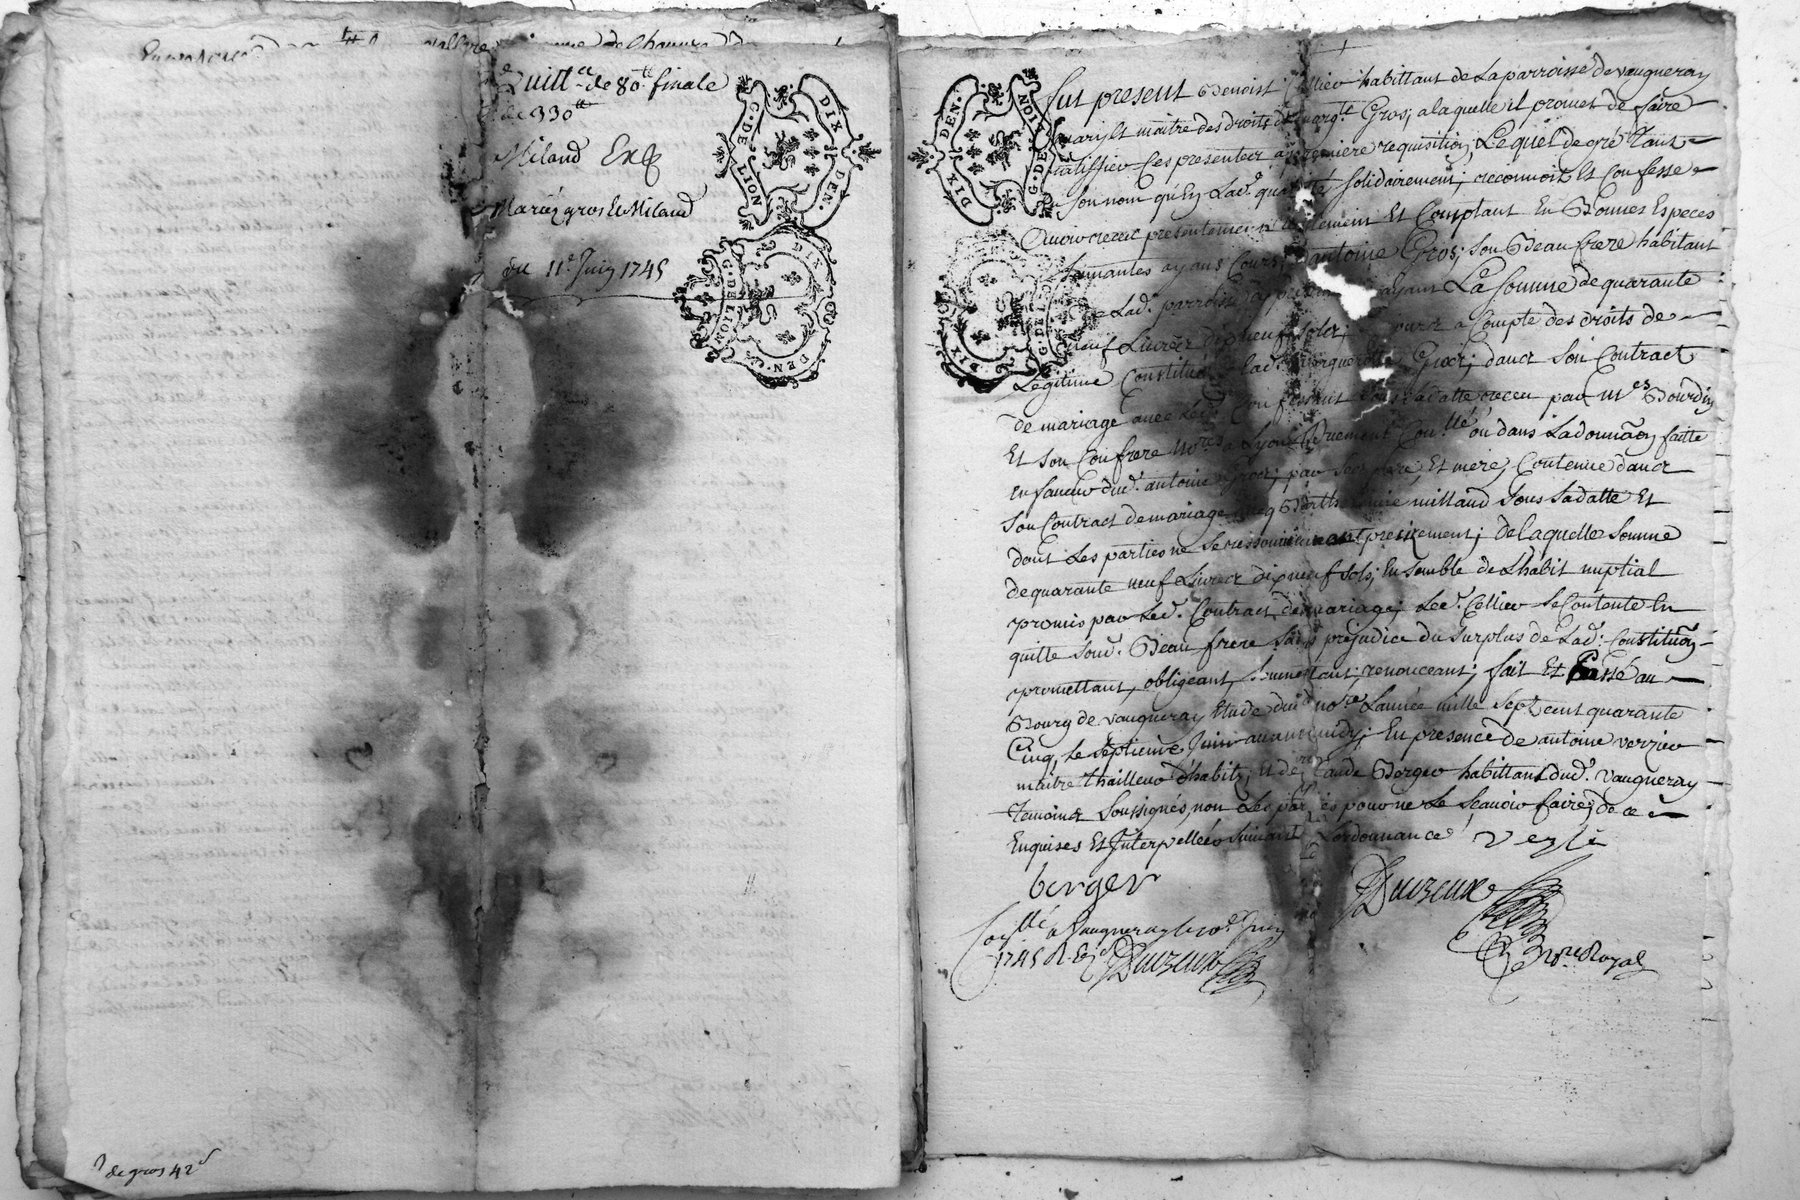 Quitt.ce de 80.tt finale
de 330tt
Milaud Exp
Mariés gros Et Milaud
du 11.e Juin 1745
G. DE LION
DIX DEN.
G. DE LION
DIX DEN.
de gros 42
DIX DEN.
G. DE LION
DIX
G. DE L
fut present Benoist Cellier habittant de La parroisse de vaugneray
mary Et maitre des droits de marg.te Gros; a laquelle il promet de faire
ratiffier Ces presentes a premiere requisition, Lequel de gré tant
En son nom qu'En Lad. qualité solidairement; reconnoit Et Confesse
Avoir receu presentement Et Comptant En Bonnes Especes
sonnantes ayans Cours; antoine Gros, son Beau frere habitant
de Lad. parroisse La somme de quarante
neuf Livres dixneuf sols; a Compte des droits de
Legitime Constitués a lad. margueritte Gros; dans son Contract
de mariage avec Led. receu par M.es Bourdin
Et son Confrere No.res a Lyon ou dans La donnaõn faitte
En faveur dud. antoine Gros; par ses pere, Et mere, Contenue dans
son Contract de mariage avec millaud sous sa datte Et
dont Les parties ne se ressouviennent precisement; de laquelle somme
de quarante neuf Livres dixneuf sols; Ensemble de L'habit nuptial
promis par Led. Contract de mariage; Led. Cellier se Contente En
quitte soud. Beau frere sans prejudice du surplus de Lad. Constituaõn
promettant, obligeant, soumettant; renonceant; fait Et Passé au
Bourg de vaugneray Etude dud. no.re L'année mille sept cent quarante
Cinq, Le septieme Juin avant midy; En presence de antoine verzier
maitre thailleur d'habits; Et de Claude Berger habittans dud. vaugneray
temoins soussignés, non Les parties pour ne Le sçavoir faire; de ce
Enquises Et Interpellées suivant L'ordonnance
berger
Duzeux
No.re Royal
Con.llé a Vaugneray le 10.e Juin
1745 R.
Duzeux